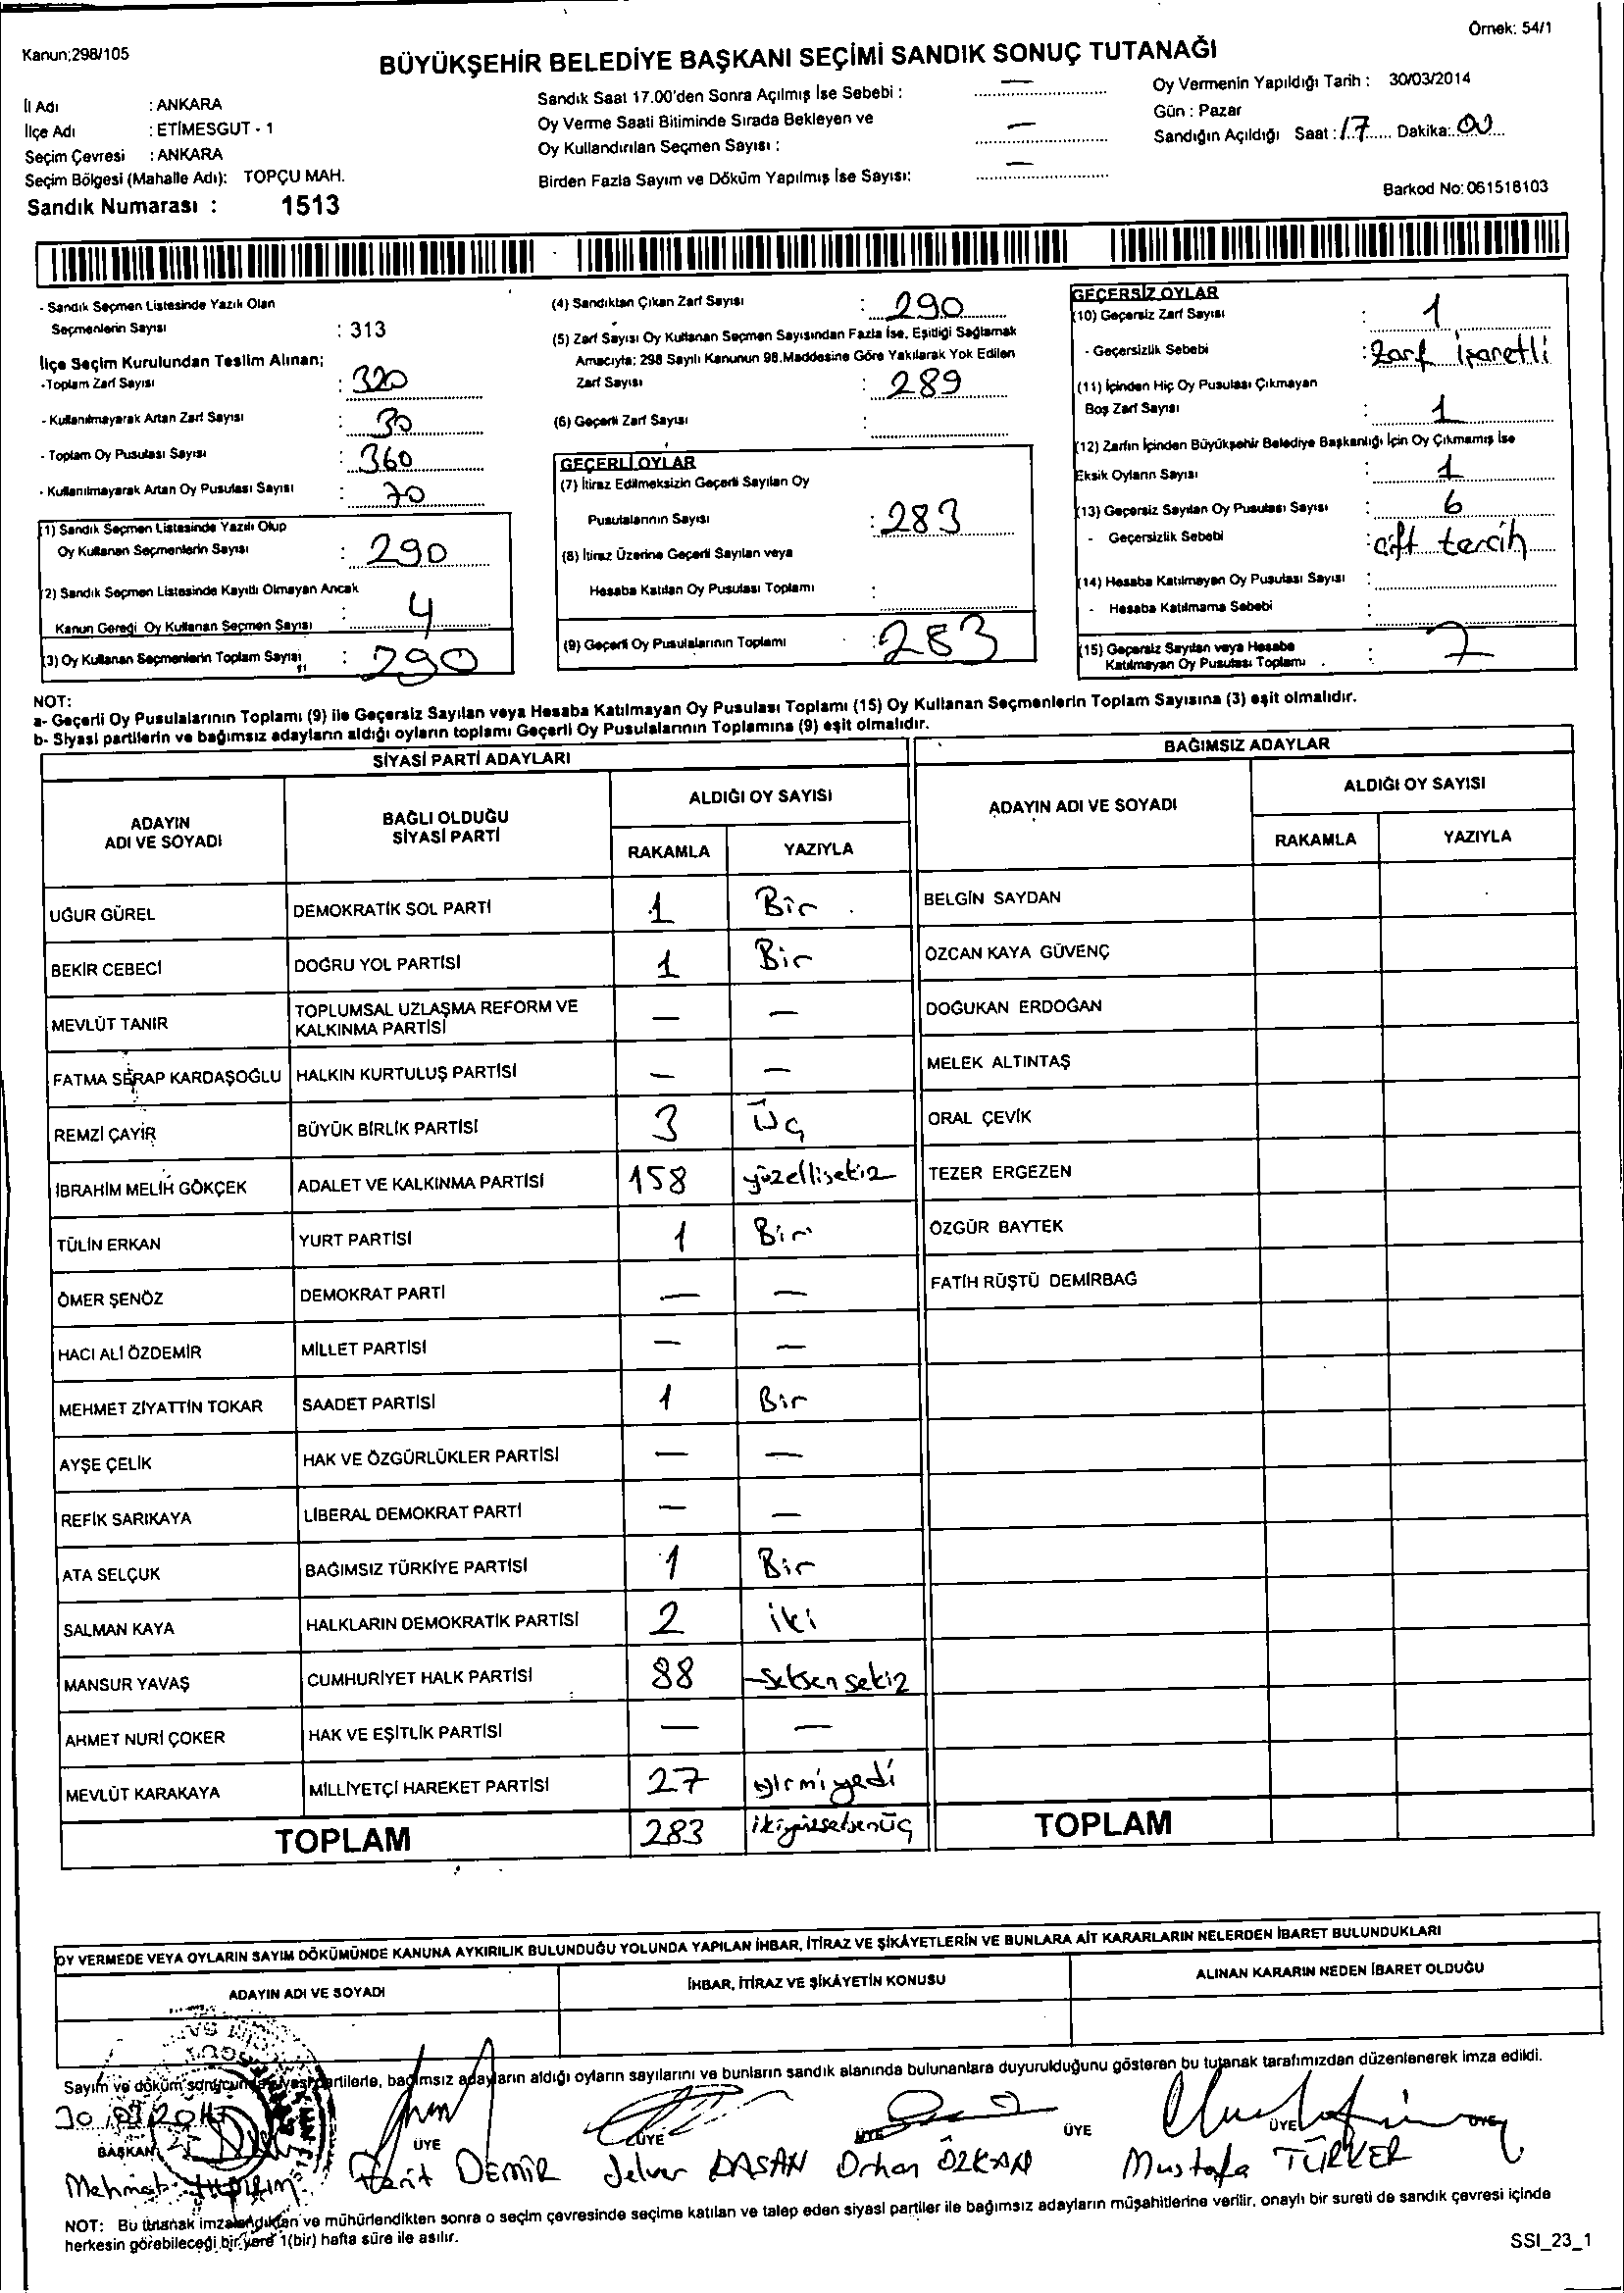 Örnek: 54/1
Kanun:298/105
BÜYÜKŞEHİR BELEDİYE BAŞKANI SEÇİMİ SANDIK SONUÇ TUTANAĞI
İl Adı : ANKARA
İlçe Adı : ETİMESGUT - 1
Seçim Çevresi : ANKARA
Seçim Bölgesi (Mahalle Adı): TOPÇU MAH.
Sandık Numarası : 1513
Sandık Saat 17.00'den Sonra Açılmış İse Sebebi : —
Oy Verme Saati Bitiminde Sırada Bekleyen ve
Oy Kullandırılan Seçmen Sayısı : —
Birden Fazla Sayım ve Döküm Yapılmış İse Sayısı: —
Oy Vermenin Yapıldığı Tarih : 30/03/2014
Gün : Pazar
Sandığın Açıldığı Saat : 17 Dakika: 00
Barkod No: 061518103
- Sandık Seçmen Listesinde Yazılı Olan
Seçmenlerin Sayısı : 313
İlçe Seçim Kurulundan Teslim Alınan;
-Toplam Zarf Sayısı : 320
- Kullanılmayarak Artan Zarf Sayısı : 30
- Toplam Oy Pusulası Sayısı : 360
- Kullanılmayarak Artan Oy Pusulası Sayısı : 70
(1) Sandık Seçmen Listesinde Yazılı Olup
Oy Kullanan Seçmenlerin Sayısı : 290
(2) Sandık Seçmen Listesinde Kayıtlı Olmayan Ancak
Kanun Gereği Oy Kullanan Seçmen Sayısı : 4
(3) Oy Kullanan Seçmenlerin Toplam Sayısı : 290
(4) Sandıktan Çıkan Zarf Sayısı : 290
(5) Zarf Sayısı Oy Kullanan Seçmen Sayısından Fazla İse, Eşitliği Sağlamak
Amacıyla: 298 Sayılı Kanunun 98.Maddesine Göre Yakılarak Yok Edilen
Zarf Sayısı : 289
(6) Geçerli Zarf Sayısı :
GEÇERLİ OYLAR
(7) İtiraz Edilmeksizin Geçerli Sayılan Oy
Pusulalarının Sayısı : 283
(8) İtiraz Üzerine Geçerli Sayılan veya
Hesaba Katılan Oy Pusulası Toplamı :
(9) Geçerli Oy Pusulalarının Toplamı : 283
GEÇERSİZ OYLAR
(10) Geçersiz Zarf Sayısı : 1
- Geçersizlik Sebebi : Zarf İşaretli
(11) İçinden Hiç Oy Pusulası Çıkmayan
Boş Zarf Sayısı : 1
(12) Zarfın İçinden Büyükşehir Belediye Başkanlığı İçin Oy Çıkmamış İse
Eksik Oyların Sayısı : 1
(13) Geçersiz Sayılan Oy Pusulası Sayısı : 6
- Geçersizlik Sebebi : çift tercih
(14) Hesaba Katılmayan Oy Pusulası Sayısı :
- Hesaba Katılmama Sebebi :
(15) Geçersiz Sayılan veya Hesaba
Katılmayan Oy Pusulası Toplamı : 7
NOT:
a- Geçerli Oy Pusulalarının Toplamı (9) ile Geçersiz Sayılan veya Hesaba Katılmayan Oy Pusulası Toplamı (15) Oy Kullanan Seçmenlerin Toplam Sayısına (3) eşit olmalıdır.
b- Siyasi partilerin ve bağımsız adayların aldığı oyların toplamı Geçerli Oy Pusulalarının Toplamına (9) eşit olmalıdır.
SİYASİ PARTİ ADAYLARI
ADAYIN ADI VE SOYADI
BAĞLI OLDUĞU SİYASİ PARTİ
ALDIĞI OY SAYISI
RAKAMLA YAZIYLA
UĞUR GÜREL DEMOKRATİK SOL PARTİ 1 Bir
BEKİR CEBECİ DOĞRU YOL PARTİSİ 1 Bir
MEVLÜT TANIR TOPLUMSAL UZLAŞMA REFORM VE KALKINMA PARTİSİ — —
FATMA SERAP KARDAŞOĞLU HALKIN KURTULUŞ PARTİSİ — —
REMZİ ÇAYIR BÜYÜK BİRLİK PARTİSİ 3 Üç
İBRAHİM MELİH GÖKÇEK ADALET VE KALKINMA PARTİSİ 158 yüzellisekiz
TÜLİN ERKAN YURT PARTİSİ 1 Bir
ÖMER ŞENÖZ DEMOKRAT PARTİ — —
HACI ALİ ÖZDEMİR MİLLET PARTİSİ — —
MEHMET ZİYATTİN TOKAR SAADET PARTİSİ 1 Bir
AYŞE ÇELİK HAK VE ÖZGÜRLÜKLER PARTİSİ — —
REFİK SARIKAYA LİBERAL DEMOKRAT PARTİ — —
ATA SELÇUK BAĞIMSIZ TÜRKİYE PARTİSİ 1 Bir
SALMAN KAYA HALKLARIN DEMOKRATİK PARTİSİ 2 iki
MANSUR YAVAŞ CUMHURİYET HALK PARTİSİ 88 Seksen sekiz
AHMET NURİ ÇOKER HAK VE EŞİTLİK PARTİSİ — —
MEVLÜT KARAKAYA MİLLİYETÇİ HAREKET PARTİSİ 27 yirmi yedi
TOPLAM 283 ikiyüzseksenüç
BAĞIMSIZ ADAYLAR
ADAYIN ADI VE SOYADI
ALDIĞI OY SAYISI
RAKAMLA YAZIYLA
BELGİN SAYDAN
ÖZCAN KAYA GÜVENÇ
DOĞUKAN ERDOĞAN
MELEK ALTINTAŞ
ORAL ÇEVİK
TEZER ERGEZEN
ÖZGÜR BAYTEK
FATİH RÜŞTÜ DEMİRBAĞ
TOPLAM
OY VERMEDE VEYA OYLARIN SAYIM DÖKÜMÜNDE KANUNA AYKIRILIK BULUNDUĞU YOLUNDA YAPILAN İHBAR, İTİRAZ VE ŞİKÂYETLERİN VE BUNLARA AİT KARARLARIN NELERDEN İBARET BULUNDUKLARI
ADAYIN ADI VE SOYADI İHBAR, İTİRAZ VE ŞİKÂYETİN KONUSU ALINAN KARARIN NEDEN İBARET OLDUĞU
Sayım ve döküm sonucunda siyasi partilerle, bağımsız adayların aldığı oyların sayılarını ve bunların sandık alanında bulunanlara duyurulduğunu gösteren bu tutanak tarafımızdan düzenlenerek imza edildi.
BAŞKAN ÜYE ÜYE ÜYE ÜYE ÜYE ÜYE
Mehmet Ferit DEMİR DAŞAN Orhan ÖZKAN Mustafa TÜRKER
NOT: Bu tutanak imzalandıktan ve mühürlendikten sonra o seçim çevresinde seçime katılan ve talep eden siyasi partiler ile bağımsız adayların müşahitlerine verilir, onaylı bir sureti de sandık çevresi içinde
herkesin görebileceği bir yere 1(bir) hafta süre ile asılır.
SSI_23_1